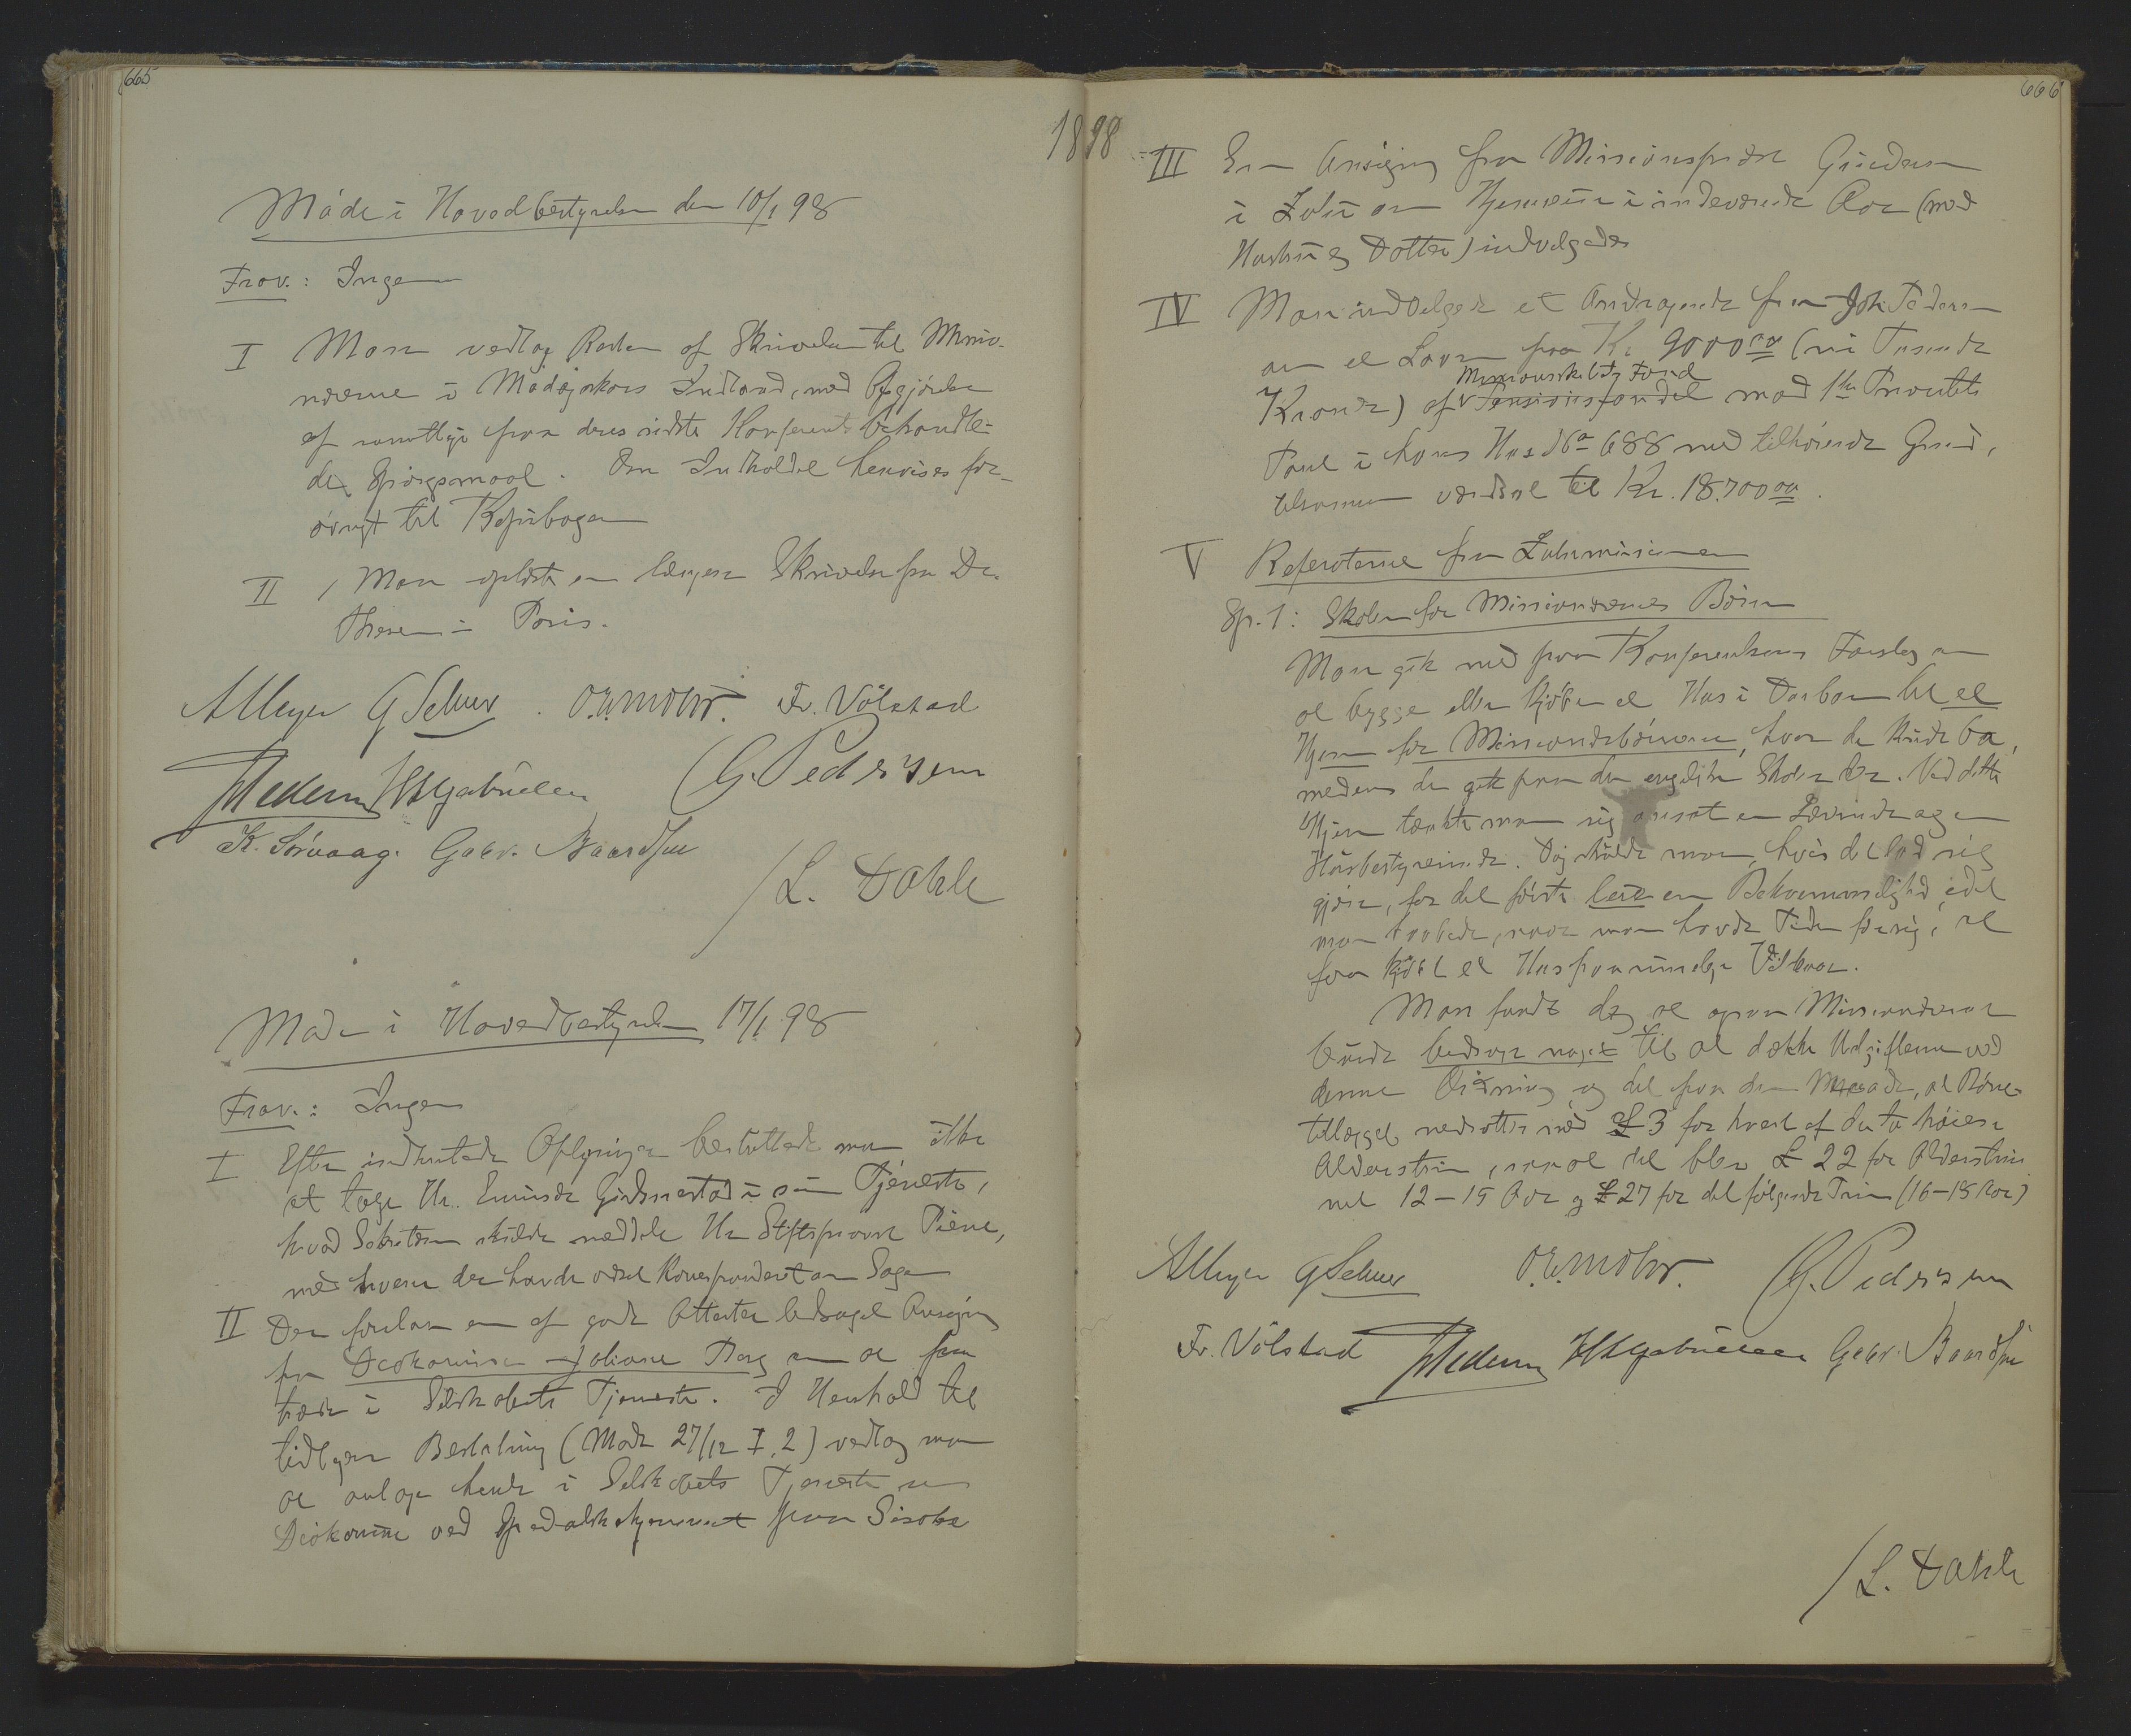 665
1898
Møde i Hovedbestyrelsen den 10/1 98
Frav.: Ingen
I Man vedtog Resten af Skrivelsen til Missio-
nærerne i Madagaskars Indland, med Afgjørelse
af samtlige paa deres sidste Konferents behandle-
de Spørgsmaal. Om Indholdet henvises for-
øvrigt til Kopibogen
II Man oplæste en længere Skrivelse fra Dr.
Thesen i Paris.
A Meyer G Schee. O.V. Mohr. Fr. Vølstad
G. Pedersen
K. Sørvaag. Gabr. Baardsen
/L. Dahle
Møde i Hovedbestyrelsen 17/1 98
Frav.: Ingen
I Efter indhentede Oplysninger besluttede man ikke
at tage Hr. Gjedsnestad i sin Tjeneste,
hvad Sekretæren skulde meddele Hr Stiftsprovst Piene,
med hvem der havde været Korrespondert om Sagen
II Der forelaa en af gode Attester ledsaget Ansøgning
fra Diakonisse Johanne Borg om at frem
træde i Selskabets Tjeneste. I Henhold til
tidligere Beslutning (Møde 27/12 I, 2) vedtog man
at antage hende i Selskabets Tjeneste som
Diakonisse ved Spedalskehjemmet paa Sirabe
666
III En Ansøgning fra Missionsprest Gundersen
i Zulu om Hjemreise i indeværende Aar (med
Hustru og Datter) indvilgedes
IV Man indvilgede et Andragende fra Joh. Pedersen
om et Laan paa Kr 9000 00 (ni Tusende
Missionsskibets Fond
Kroner) af Pensionsfondet mod 1ste Prioritets
Pant i hans Hus No 688 med tilhørende Grund,
tilsammen værdsat til Kr. 18.700 00.
V Referaterne fra Zulumissionen
Sp. 1: Skolen for Missionærernes Børn
Man gik ind paa Konferentsens Forslag om
at bygge eller kjøbe et Hus i Durban til et
Hjem for Missionærbørnene, hvor de kunde bo,
medens de gik paa de engelske Skoler der. Ved dette
Hjem tænkte man sig ansat en Lærerinde og en
Husbestyrerinde. Dog skulde man, hvis det lod sig
gjøre, for det første leie en Bekvemmelighed, idet
man haabede, naar man havde Tiden for sig, at
faa kjøbt et Hus paa rimelige Vilkaar.
Man fandt dog at ogsaa Missionærerne
burde bidrage noget til at dække Udgifterne ved
denne Ordning og det paa den Maade, at Børne-
tillægget nedsættes med £ 3 for hvert af de to høiere
Alderstrin, saa at det blev £ 22 for Alderstrin-
net 12-15 Aar og £ 27 for det følgende Trin (16-18 Aar)
A Meyer G Schee O.V. Mohr. G. Pedersen
Fr. Vølstad Gabr. Baardsen
/L. Dahle